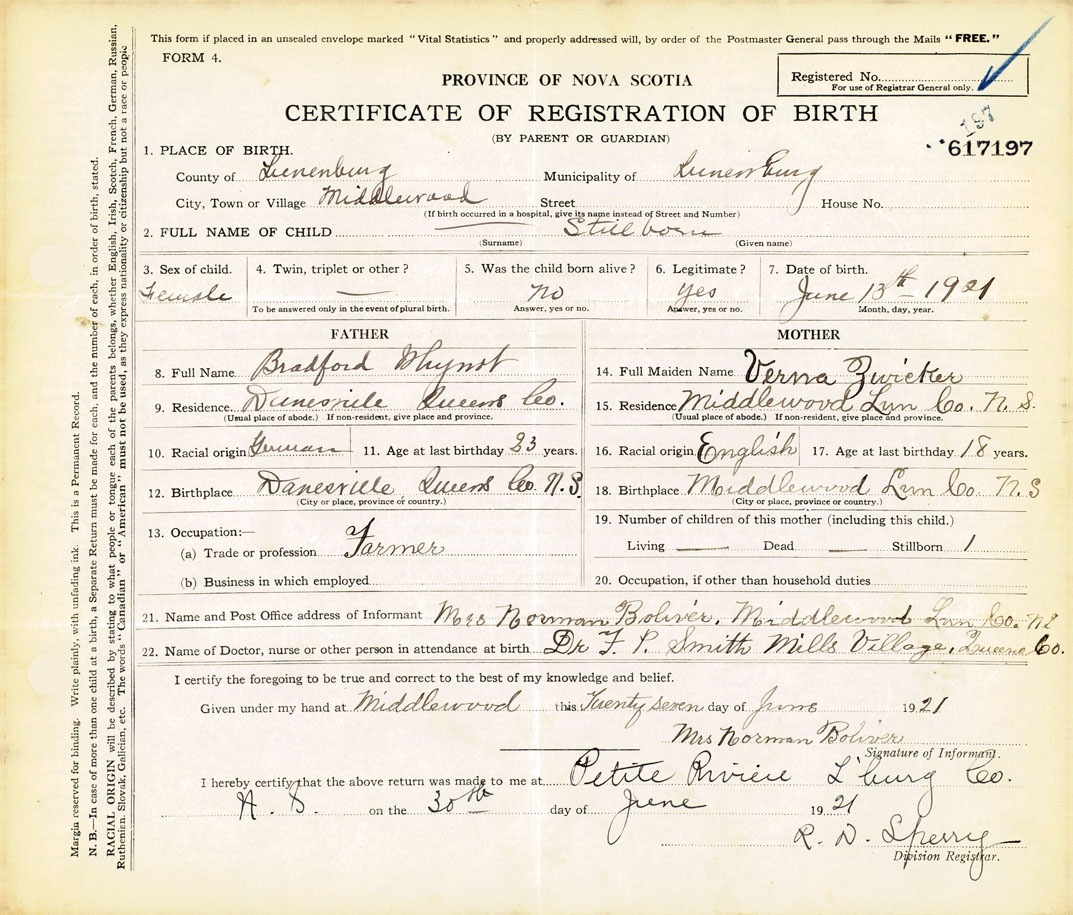 This form if placed in an unsealed envelope marked "Vital Statistics" and properly addressed will, by order of the Postmaster General pass through the Mails "FREE."
FORM 4.
Registered No.
For use of Registrar General only.
PROVINCE OF NOVA SCOTIA
CERTIFICATE OF REGISTRATION OF BIRTH
(BY PARENT OR GUARDIAN)
197
617197
1. PLACE OF BIRTH.
County of Lunenburg Municipality of Lunenburg
City, Town or Village Middlewood Street House No.
(If birth occurred in a hospital, give its name instead of Street and Number)
2. FULL NAME OF CHILD Stillborn
(Surname) (Given name)
3. Sex of child. 4. Twin, triplet or other? 5. Was the child born alive? 6. Legitimate? 7. Date of birth.
Female — No Yes June 13th 1921
To be answered only in the event of plural birth. Answer, yes or no. Answer, yes or no. Month, day, year.
FATHER
8. Full Name Bradford Whynot
9. Residence Danesville Queens Co.
(Usual place of abode.) If non-resident, give place and province.
10. Racial origin German 11. Age at last birthday 23 years.
12. Birthplace Danesville, Queens Co. N.S.
(City or place, province or country.)
13. Occupation:—
(a) Trade or profession Farmer
(b) Business in which employed
MOTHER
14. Full Maiden Name Verna Zwicker
15. Residence Middlewood Lun Co. N. S.
(Usual place of abode.) If non-resident, give place and province.
16. Racial origin English 17. Age at last birthday 18 years.
18. Birthplace Middlewood Lun Co N.S
(City or place, province or country.)
19. Number of children of this mother (including this child.)
Living — Dead — Stillborn 1
20. Occupation, if other than household duties
21. Name and Post Office address of Informant Mrs Norman Boliver, Middlewood Lun Co. NS
22. Name of Doctor, nurse or other person in attendance at birth Dr F. P. Smith Mills Village, Queens Co.
I certify the foregoing to be true and correct to the best of my knowledge and belief.
Given under my hand at Middlewood this Twenty seven day of June 1921
Mrs Norman Boliver
Signature of Informant.
I hereby certify that the above return was made to me at Petite Riviere L'burg Co.
N. S. on the 30th day of June 1921
R. D. Sperry
Division Registrar.
Margin reserved for binding. Write plainly, with unfading ink. This is a Permanent Record.
N. B.—In case of more than one child at a birth, a Separate Return must be made for each, and the number of each, in order of birth, stated.
RACIAL ORIGIN will be described by stating to what people or tongue each of the parents belongs, whether English, Irish, Scotch, French, German, Russian,
Ruthenian, Slovak, Galician, etc. The words "Canadian" or "American" must not be used, as they express nationality or citizenship but not a race or people